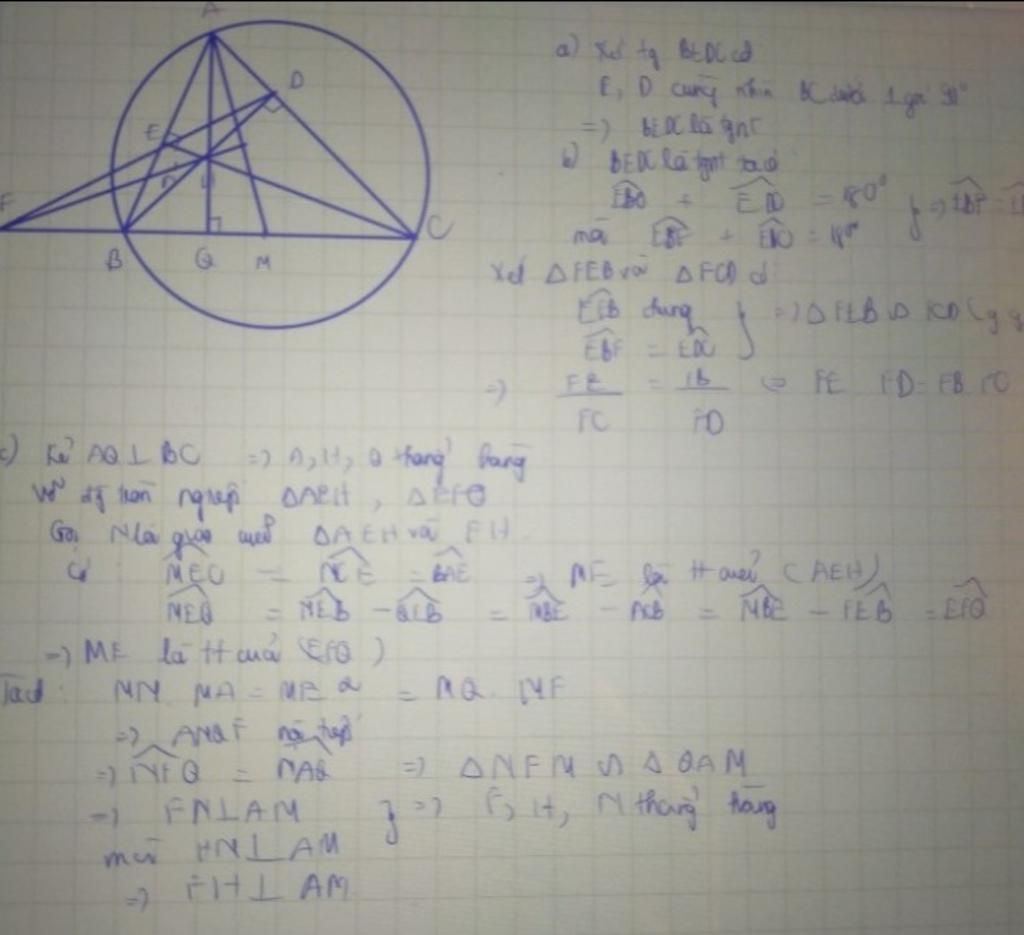 A
D
E
H
F
B
Q
M
C
a) Xét tg BEDC có
E, D cùng nhìn BC dưới 1 góc 90°
=> BEDC là tgnt
b) BEDC là tgnt ta có
+ = 180°
mà EBF + = 180°
Xét △FEB và △FCD có
chung
EBF = EDC
=> △FEB ∽ FCD (g g
=> FE / FC = FB / FD <=> FE FD = FB. FC
c) Kẻ AQ ⊥ BC => A, H, Q thẳng hàng
Vẽ đg tròn △AEH, △EFQ
Gọi N là giao △AEH và FH
Có MEC = MCE = BAE => ME là tt của (AEH)
MEQ = MEB - QEB = MBE - ACB = MBE - FEB = EFQ
=> ME là tt của (EFQ)
Ta có: MN. MA = ME 2 = MQ. MF
=> ANQF nội tiếp
=> NFQ = NAQ => △NFM ∽ △QAM
=> FN ⊥ AM
mà HN ⊥ AM
} => F, H, N thẳng hàng
=> FH ⊥ AM